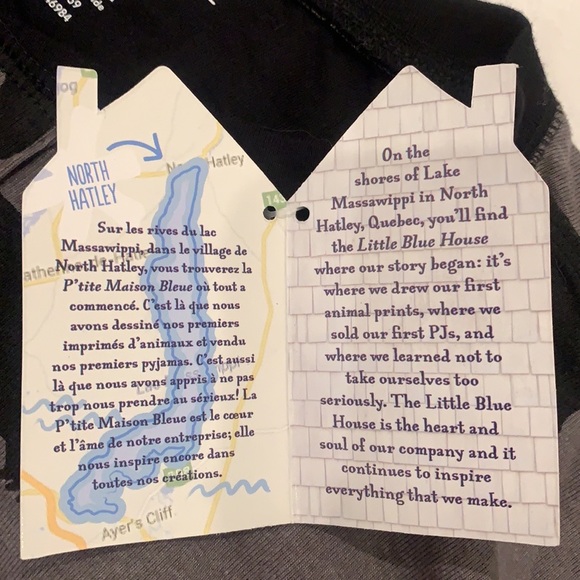 6984
og
NORTH
HATLEY
Hatley
Sur les rives du lac
Massawippi, dans le village de
North Hatley, vous trouverez la
P'tite Maison Bleue où tout a
commencé. C'est là que nous
avons dessiné nos premiers
imprimés d'animaux et vendu
nos premiers pyjamas. C'est aussi
là que nous avons appris à ne pas
trop nous prendre au sérieux! La
P'tite Maison Bleue est le cœur
et l'âme de notre entreprise; elle
nous inspire encore dans
toutes nos créations.
Ayer's Cliff
On the
shores of Lake
Massawippi in North
Hatley, Quebec, you'll find
the Little Blue House
where our story began: it's
where we drew our first
animal prints, where we
sold our first PJs, and
where we learned not to
take ourselves too
seriously. The Little Blue
House is the heart and
soul of our company and it
continues to inspire
everything that we make.